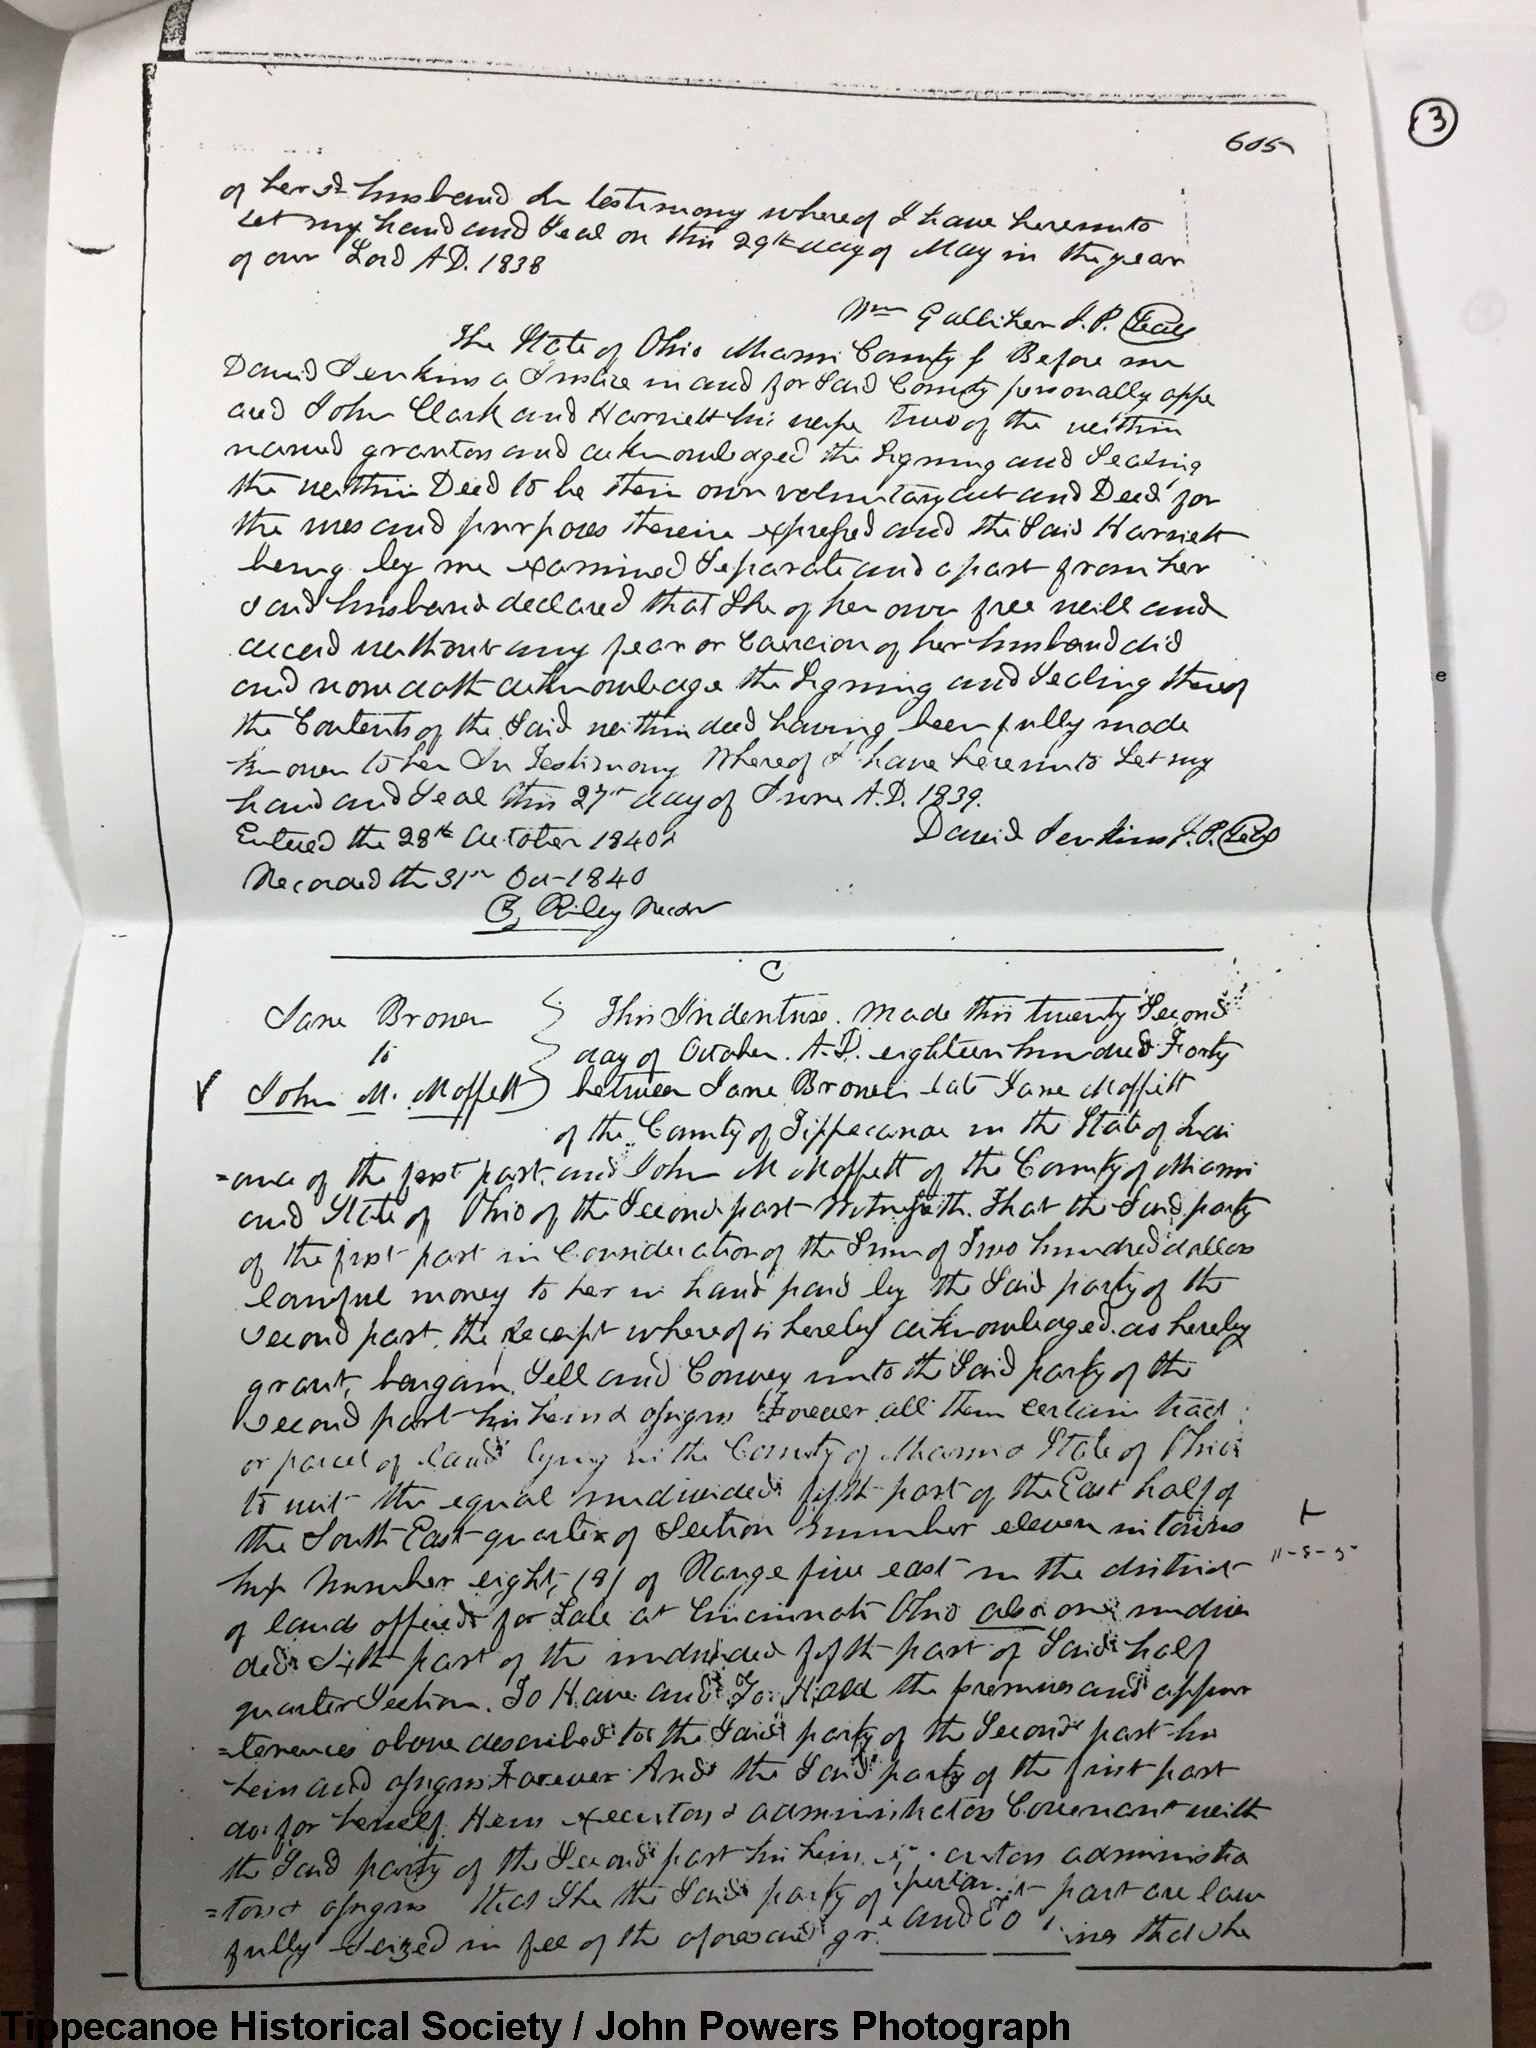 3
605
of her sd husband In testimony whereof I have hereunto
set my hand and Seal on this 29th day of May in the year
of our Lord A.D. 1838
Wm Galliher J.P. Seal
The State of Ohio Miami County ss Before me
David Jenkins a Justice in and for Said County personally appe
ared John Clark and Harriett his wife two of the within
named grantors and acknowledged the Signing and Sealing
the within Deed to be their own voluntary act and Deed for
the uses and purposes therein expressed and the Said Harriett
being by me examined Separate and apart from her
said husband declared that She of her own free will and
accord without any fear or Coercion of her husband did
and now doth acknowledge the Signing and Sealing thereof
the Contents of the Said within deed having been fully made
known to her In Testimony Whereof I have hereunto Set my
hand and Seal this 27th day of June A.D. 1839.
David Jenkins J.P. Seal
Entered the 28th October 1840
Recorded the 31st Oct 1840
B, Riley Recdr
C
Jane Brown
to
John M. Moffett
This Indenture. Made this twenty Second
day of October. A.D. eighteen hundred Forty
between Jane Brown late Jane Moffett
of the County of Tippecanoe in the State of Indi
=ana of the first part. and John M Moffett of the County of Miami
and State of Ohio of the Second part Witnesseth. That the Said party
of the first part in Consideration of the Sum of Two hundred dollars
lawful money to her in hand paid by the Said party of the
second part. the receipt whereof is hereby acknowledged. as hereby
grant, bargain, Sell and Convey unto the Said party of the
second part his heirs & assigns Forever all them certain tract
or parcel of land lying in the County of Miami & State of Ohio
to wit the equal undivided fifth part of the East half of
the South East quarter of Section number eleven in towns
hip Number eight, (8) of Range five east in the district
of lands offered for Sale at Cincinnati Ohio also one undivi
ded sixth part of the undivided fifth part of Said half
quarter Section. To Have and To Hold the premises and appur
=tenances above described to the Said party of the Second part his
heirs and assigns Forever And the Said party of the first part
do for herself. Heirs executors & administrators Covenant with
the Said party of the Second part his heirs. administra
=tors & assigns that She the Said party of part are law
fully Seized in fee of the aforesaid that She
11-8-5
Tippecanoe Historical Society / John Powers Photograph